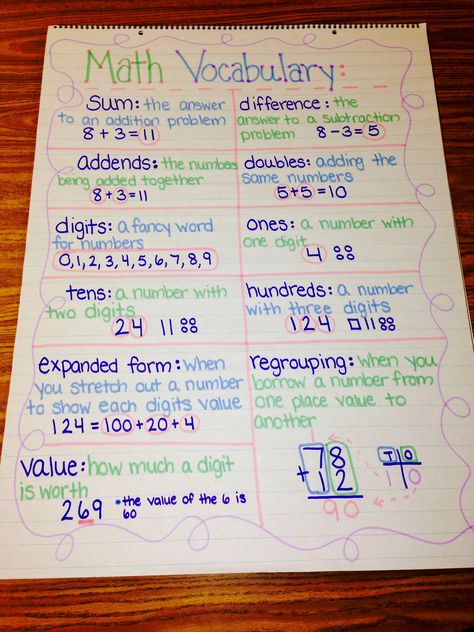 Math Vocabulary:
sum: the answer
to an addition problem
8 + 3 = 11
difference: the
answer to a subtraction
problem 8 - 3 = 5
addends: the numbers
being added together
8 + 3 = 11
doubles: adding the
same numbers
5 + 5 = 10
digits: a fancy word
for numbers
0, 1, 2, 3, 4, 5, 6, 7, 8, 9
ones: a number with
one digit
4
tens: a number with
two digits
24
hundreds: a number
with three digits
124
expanded form: when
you stretch out a number
to show each digits value
124 = 100 + 20 + 4
regrouping: when you
borrow a number from
one place value to
another
78
+ 12
90
T O
1 0
value: how much a digit
is worth
269 • the value of the 6 is
60